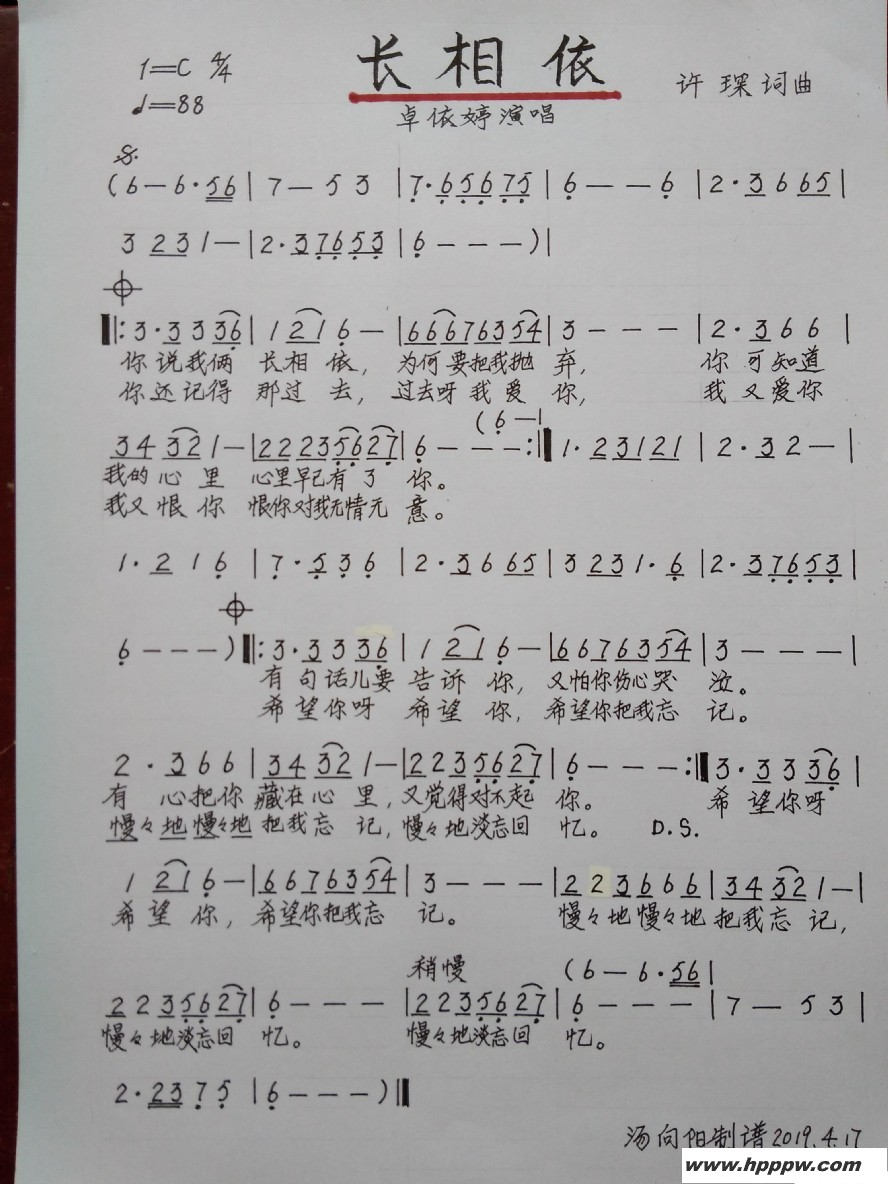 1=C 4/4
长相依
许琛词曲
♩=88
卓依婷演唱
(6 — 6·56 | 7 — 5 3 | 7·65675 | 6 — — 6 | 2·3665 |
3 231 — | 2·37653 | 6 — — — ) |
‖: 3·3336 | 1 216 — | 66676354 | 3 — — — | 2·366 |
你说我俩 长相依, 为何要把我抛弃, 你可知道
你还记得 那过去, 过去呀我爱你, 我又爱你
(6 — |
34 321 — | 22235627 | 6 — — — :‖ 1·23121 | 2·32 — |
我的心里 心里早已有了你。
我又恨你 恨你对我无情无意。
1·216 | 7·536 | 2·3665 | 3231·6 | 2·37653 |
6 — — — ) ‖: 3·3336 | 1 216 — | 6676354 | 3 — — — |
有句话儿要告诉你, 又怕你伤心哭泣。
希望你呀 希望你, 希望你把我忘记。
2·366 | 34321 — | 2235627 | 6 — — — :‖ 3·3336 |
有心把你藏在心里, 又觉得对不起你。 希望你呀
慢々地慢々地把我忘记, 慢々地淡忘回忆。 D.S.
1 216 — | 6676354 | 3 — — — | 223666 | 34321 — |
希望你, 希望你把我忘记。 慢々地慢々地把我忘记,
稍慢 (6 — 6·56 |
2235627 | 6 — — — | 2235627 | 6 — — — | 7 — 5 3 |
慢々地淡忘回忆。 慢々地淡忘回忆。
2·2375 | 6 — — — ) ‖
汤向阳制谱2019.4.17
www.hpppw.com